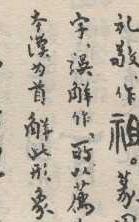 礼敬作祖。篆
字、誤解作、所以薦
本漢为首解此形象